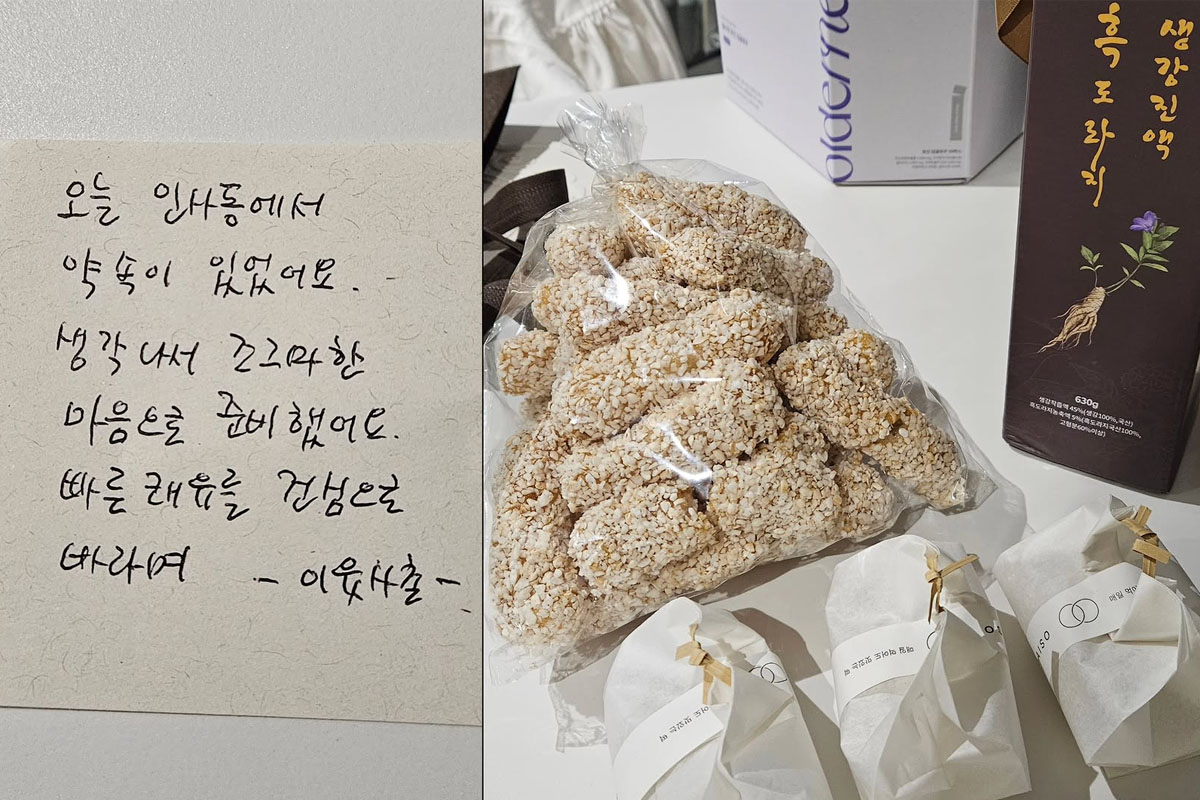 오늘 인사동에서
약속이 있었어요.
생각나서 조그마한
마음으로 준비했어요.
빠른 쾌유를 진심으로
바라며 - 이웃사촌 -
생강진액
흑도라지
630g
생강착즙액 45%(생강100%,국산)
흑도라지농축액 5%(흑도라지국산100%,
고형분60%이상)
매일 먹어도 맛있는 떡
매일
OSISO